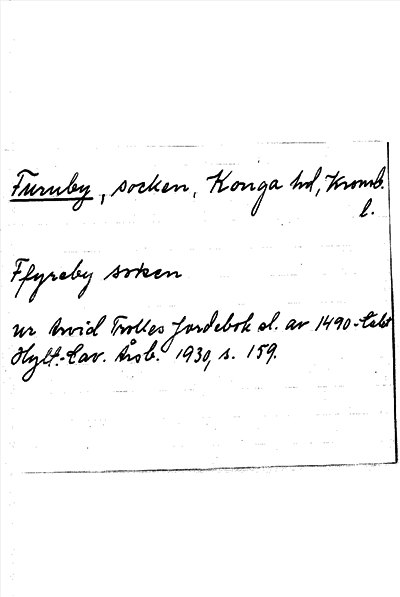 Furuby, socken, Konga hd, Kronob.
l.
Ffyreby soken
ur Arvid Trolles Jordebok sl. av 1490-talet
Hylt.-Cav. Årsb. 1930, s. 159.